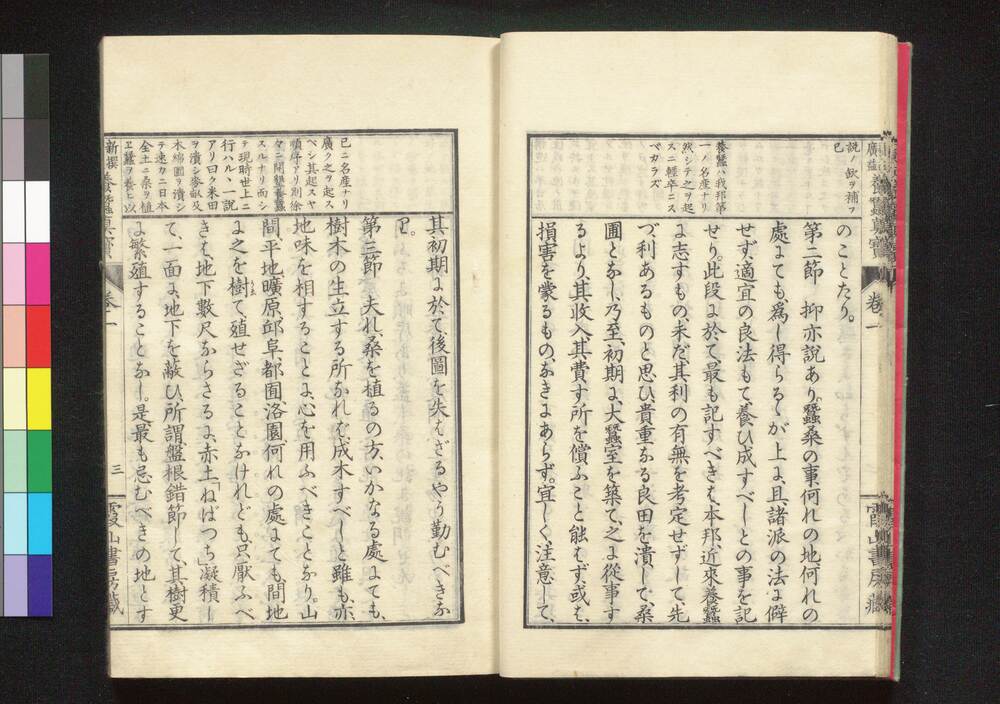 説ノ欲ヲ補フ
已
養蠶ハ我邦第
一ノ名産ナリ
然シテ之ヲ起
スニ輕卒ニス
ベカラズ
のことたり。
第二節　抑亦説あり。蠶桑の事、何れの地、何れの
處にても、爲し得らるゝが上に、且諸派の法に僻
せず、適宜の良法もて、養ひ成すべしとの事を記
せり。此段に於て、最も記すべきは、本邦、近來養蠶
に志すもの、未だ、其利の有無を考定せずして、先
づ、利あるものと思ひ、貴重なる良田を潰して、桑
圃となし、乃至、初期に、大蠶室を築て、之に從事す
るより、其收入、其費す所を償ふこと能はず、或は、
損害を蒙るもの、なきにあらず。宜しく、注意して、
卷一
霞山書房藏
已ニ名産ナリ
廣ク之ヲ起ス
ベシ其起スヤ
順序アリ則徐
々ニ開墾養蠶
スルナリ而シ
テ現時世上ニ
行ハルヽ一説
アリ曰ク米田
ヲ潰シ麥畝及
木綿圃ヲ潰シ
テ速カニ日本
全土ニ桑ヲ植
ヱ蠶ヲ養ヒ以
其初期に於て、後圖を失はざるやう勤むべきな
り。
第三節　夫れ、桑を植るの方、いかなる處にても、
樹木の生立する所なれば、成木すべしと雖も、亦、
地味を相することに、心を用ふべきことなり。山
間、平地、曠原、邱阜、都圃、洛園、何れの處にても、間地
に之を樹て、殖せざることなけれども、只、厭ふべ
きは、地下數尺ならざるに、赤土「ねばつち」凝積し
て、一面に、地下を蔽ひ、所謂、盤根錯節して、其樹更
に繁殖することなし。是最も忌むべきの地とす
卷一
三
霞山書房藏